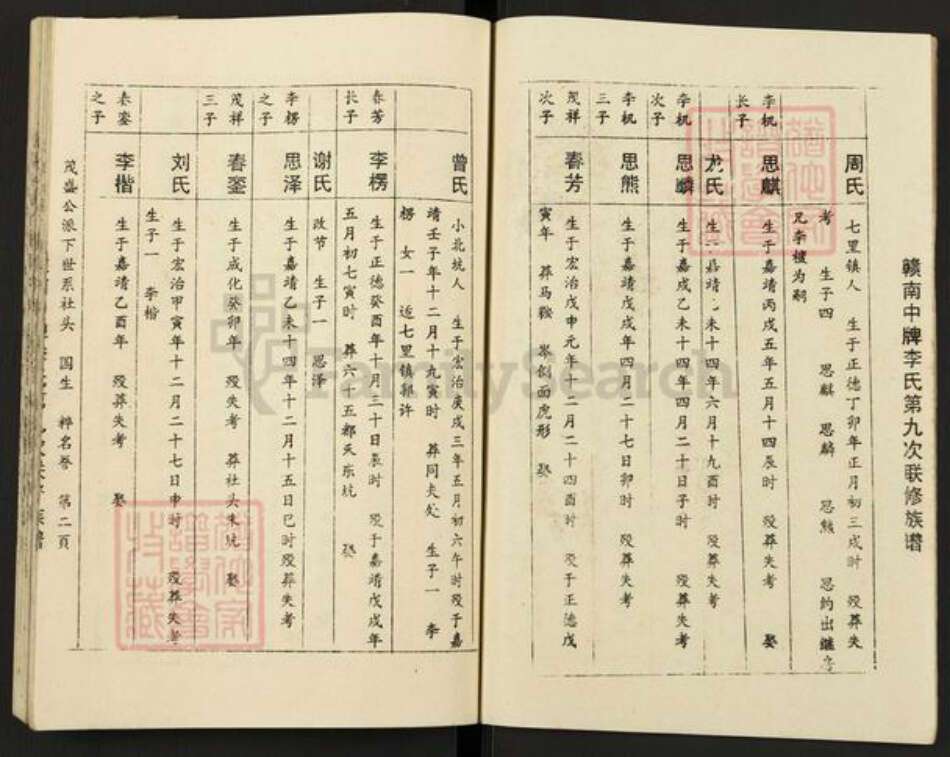 赣南中牌李氏第九次联修族谱
周氏 七里镇人 生于正德丁卯年正月初三戌时 殁葬失
考 生子四 思麒 思麟 思熊 思约出继
兄李 为嗣
李机长子 思麒 生于嘉靖丙戌五年五月十四辰时 殁葬失考 娶
尤氏 生 嘉靖 未十四年六月十九酉时 殁葬失考
李机次子 思麟 生于嘉成乙未十四年四月二十日子时 殁葬失考
李机三子 思熊 生于嘉靖戊戌年四月二十七日卯时 殁葬失考
茂祥次子 春芳 生于宏治戊申元年十二月二十四酉时 殁于正德戊
寅年 葬马鞍 岑侧面虎形 娶
曾氏 小北坑人 生于宏治庚戌三年五月初六午时殁于嘉
靖壬子年十二月十九寅时 葬同夫处 生子一 李
楞 女一 适七里镇郭许
春芳长子 李楞 生于正德癸酉年十月三十日辰时 殁于嘉靖戊戌年
五月初七寅时 葬六十五都天东坑 娶
谢氏 改节 生子一 思泽
李楞之子 思泽 生于嘉靖乙未十四年十二月十五日巳时殁葬失考
茂祥三子 春銮 生于成化癸卯年 殁失考 葬社头朱坑 娶
刘氏 生于宏治甲寅年十二月二十七日申时 殁葬失考
生子一 李楷
春銮之子 李楷 生于嘉靖乙酉年 殁葬失考 娶
茂盛公派下世系社头 国生 梓名誉 第二頁